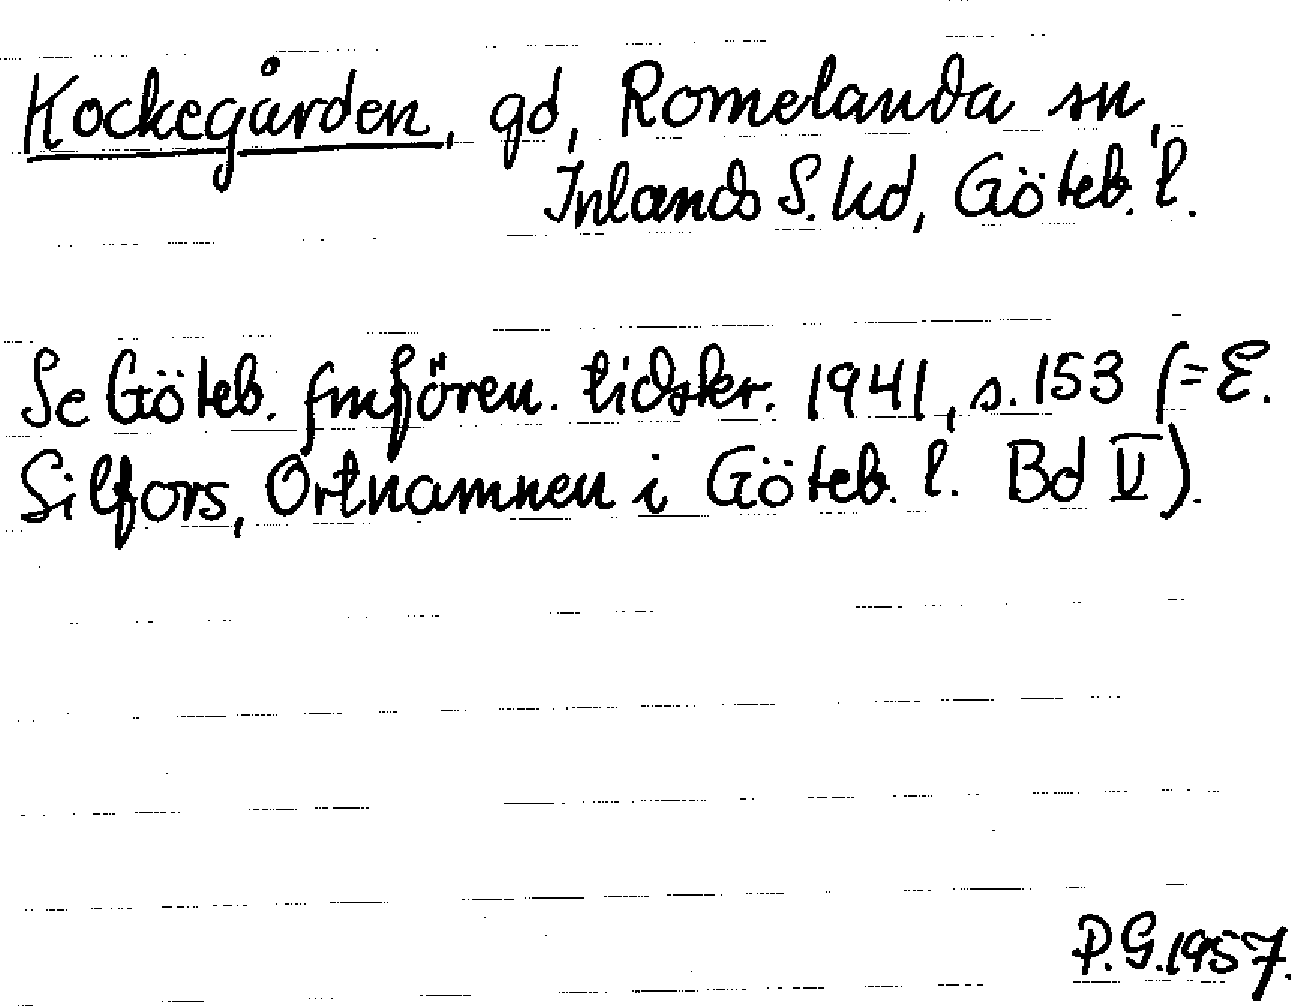 Kockegården, gd, Romelanda sn,
Inlands S. hd, Göteb. l.
Se Göteb. fmfören. tidskr. 1941, s. 153 (= E.
Silfors, Ortnamnen i Göteb. l. Bd V).
P.G. 1957.